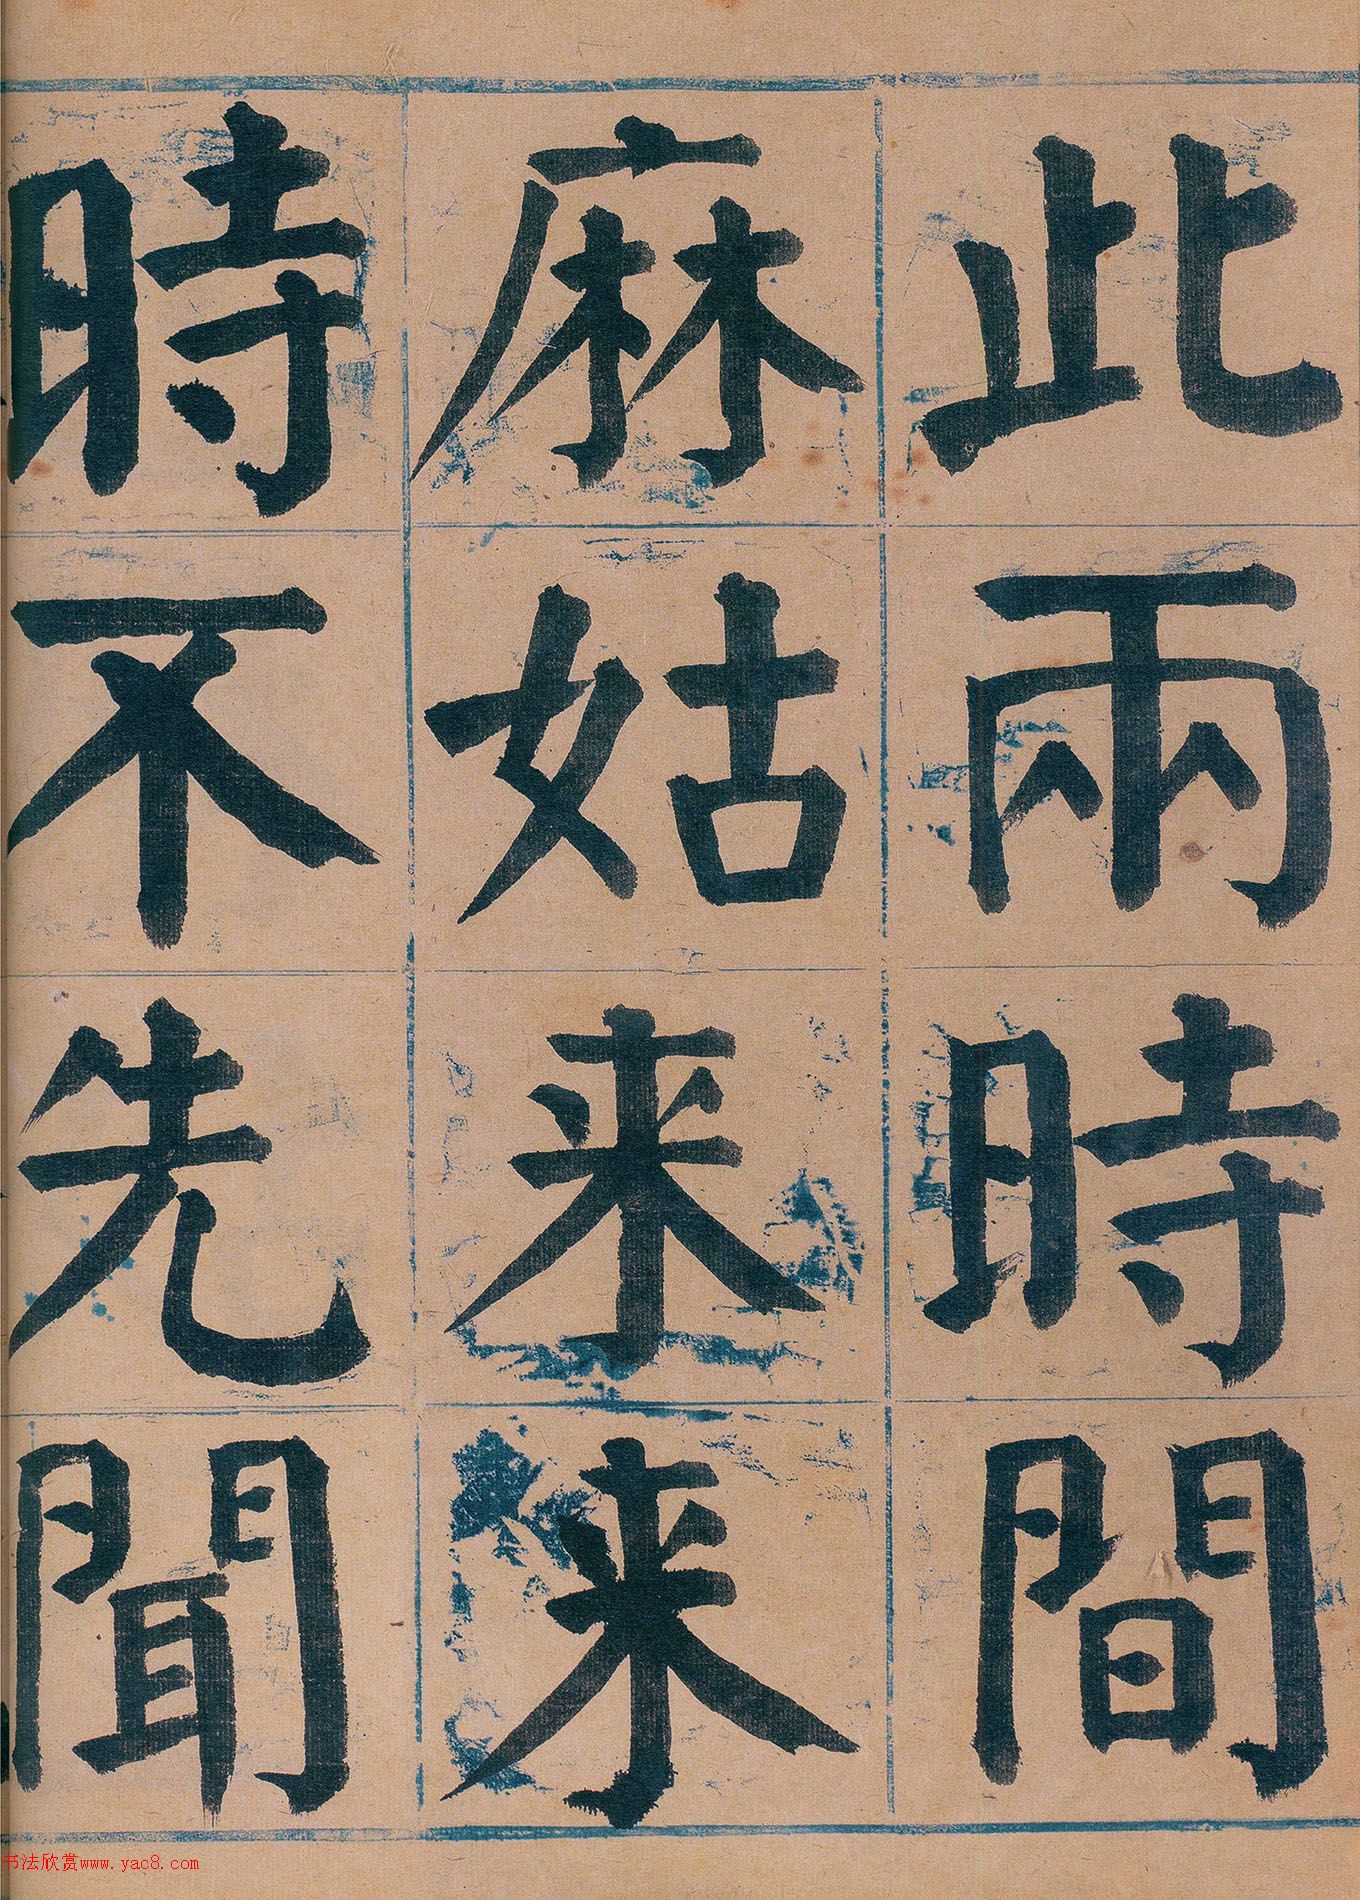 此兩時間
麻姑来来
時不先聞
书法欣赏www.yac8.com